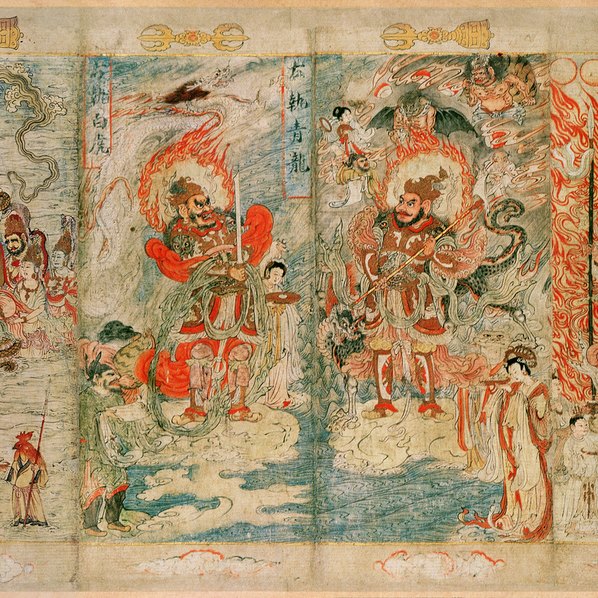 左執青龍
右執白虎